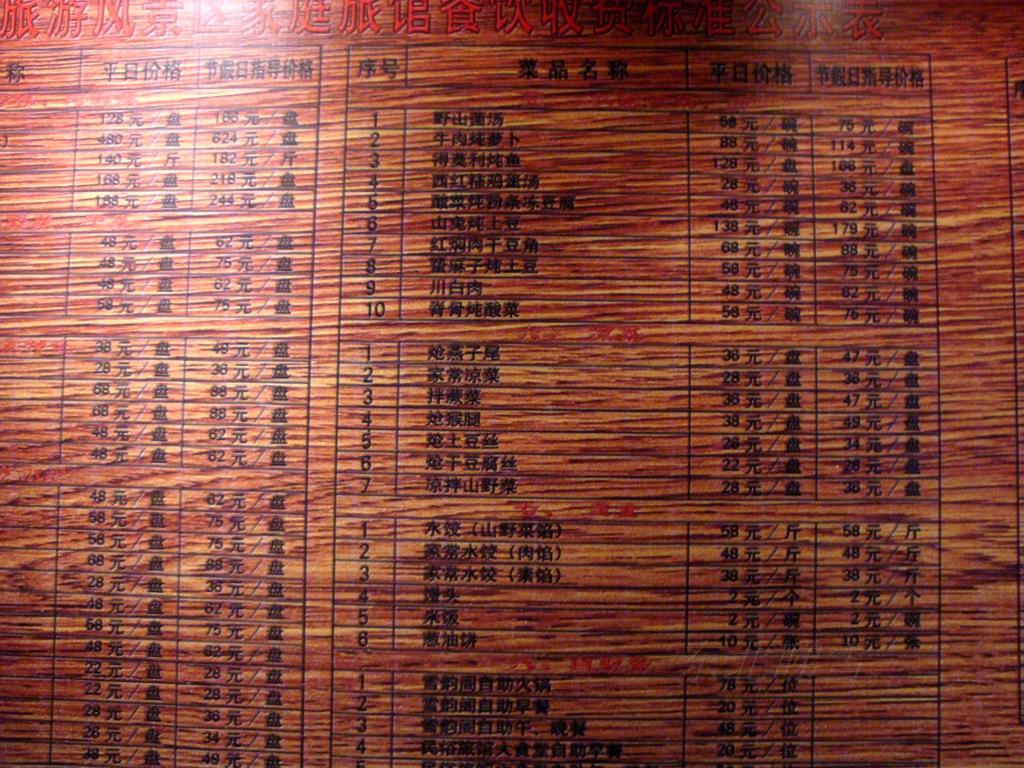 旅游风景区家庭旅馆餐饮收费标准公示表
称 平日价格 节假日指导价格
128元/盘 166元/盘
480元/盘 624元/盘
140元/斤 182元/斤
168元/盘 218元/盘
188元/盘 244元/盘
48元/盘 62元/盘
48元/盘 75元/盘
48元/盘 62元/盘
58元/盘 75元/盘
38元/盘 49元/盘
28元/盘 36元/盘
68元/盘 88元/盘
68元/盘 88元/盘
48元/盘 62元/盘
48元/盘 62元/盘
48元/盘 62元/盘
58元/盘 75元/盘
58元/盘 75元/盘
68元/盘 88元/盘
28元/盘 36元/盘
48元/盘 62元/盘
58元/盘 75元/盘
48元/盘 62元/盘
22元/盘 28元/盘
22元/盘 28元/盘
28元/盘 36元/盘
26元/盘 34元/盘
38元/盘 49元/盘
序号 菜品名称 平日价格 节假日指导价格
1 野山菌汤 58元/碗 75元/碗
2 牛肉炖萝卜 88元/碗 114元/碗
3 得莫利炖鱼 128元/盘 166元/盘
4 西红柿鸡蛋汤 28元/碗 36元/碗
5 酸菜炖粉条冻豆腐 48元/碗 62元/碗
6 山兔炖土豆 138元/碗 179元/碗
7 红焖肉干豆角 68元/碗 88元/碗
8 蜇麻子炖土豆 58元/碗 75元/碗
9 川白肉 48元/碗 62元/碗
10 脊骨炖酸菜 58元/碗 75元/碗
六、凉菜
1 炝燕子尾 36元/盘 47元/盘
2 家常凉菜 28元/盘 36元/盘
3 拌蕨菜 36元/盘 47元/盘
4 炝猴腿 38元/盘 49元/盘
5 炝土豆丝 26元/盘 34元/盘
6 炝干豆腐丝 22元/盘 28元/盘
7 凉拌山野菜 28元/盘 36元/盘
七、主食
1 水饺（山野菜馅） 58元/斤 58元/斤
2 家常水饺（肉馅） 48元/斤 48元/斤
3 家常水饺（素馅） 38元/斤 38元/斤
4 馒头 2元/个 2元/个
5 米饭 2元/碗 2元/碗
6 葱油饼 10元/张 10元/张
八、自助餐
1 雪韵阁自助火锅 78元/位
2 雪韵阁自助早餐 20元/位
3 雪韵阁自助午、晚餐 48元/位
4 民俗旅馆大食堂自助早餐 20元/位